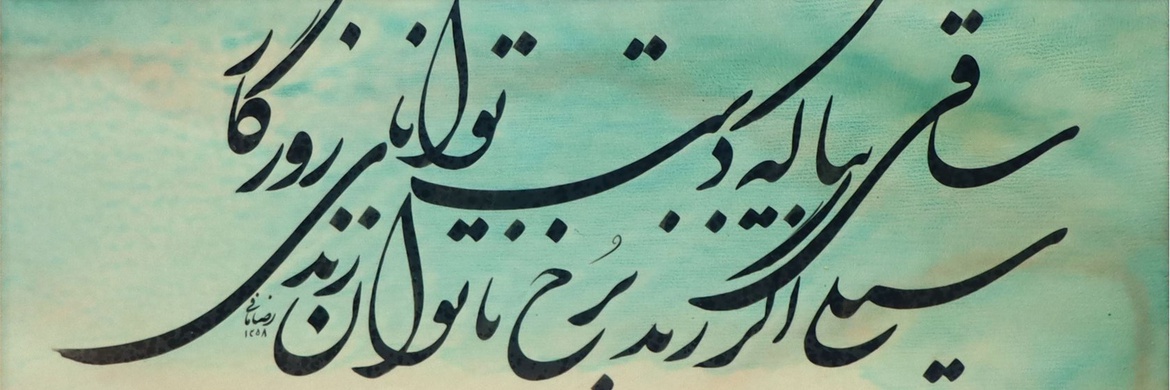 ساقی بیا که دست توانای روزگار
سیلی اگر زند بُرخ ناتوان زند
رضا مافی
۱۳۵۸